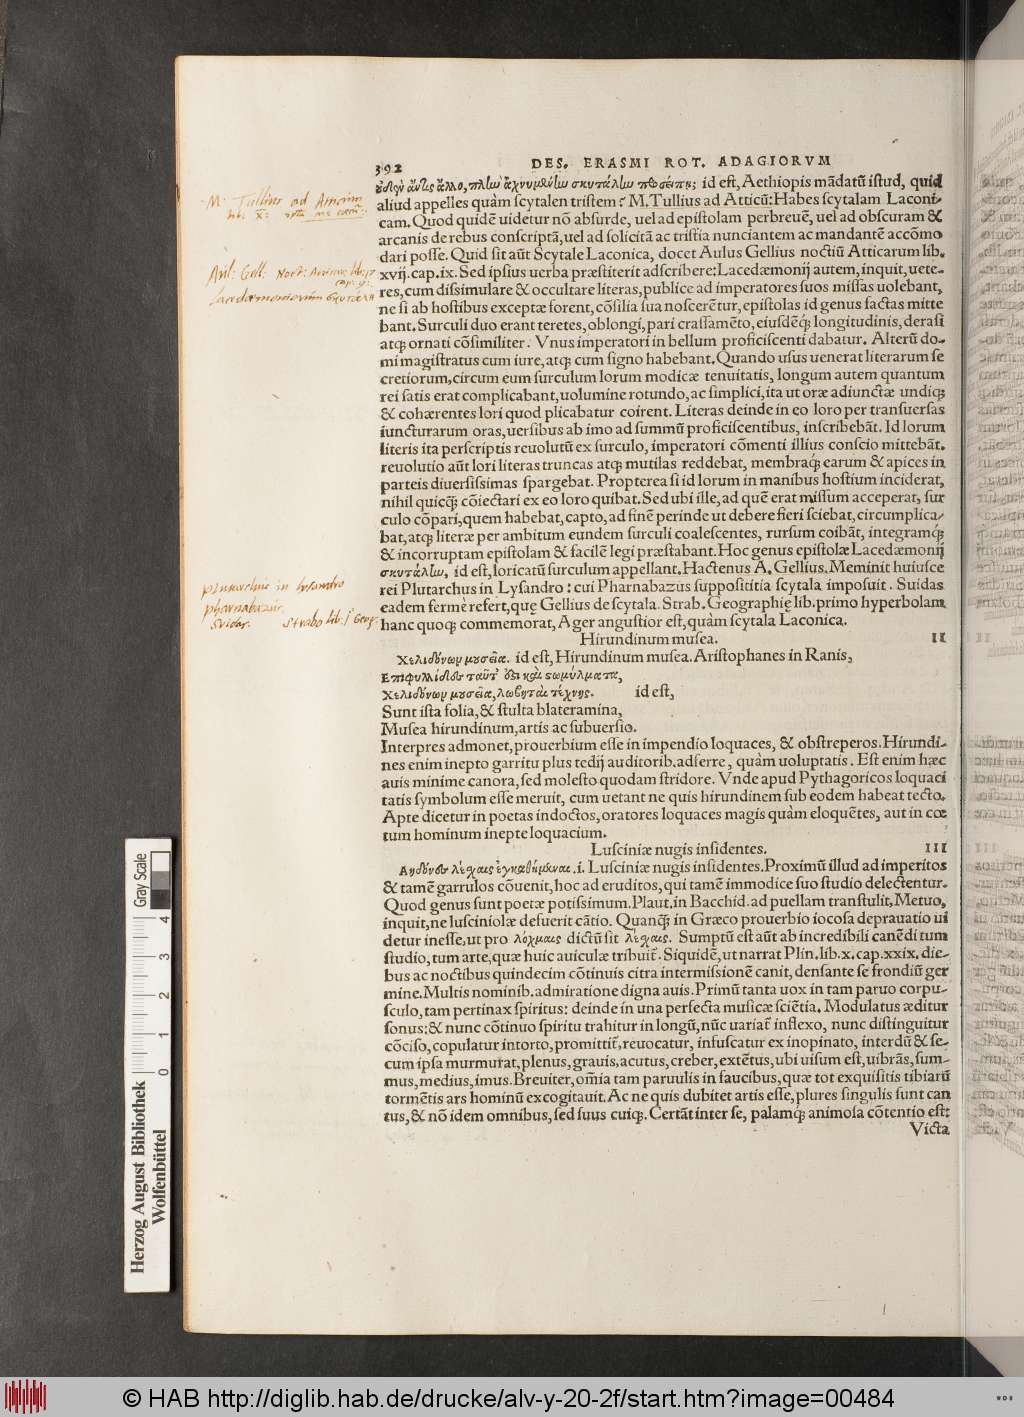 392 DES. ERASMI ROT. ADAGIORVM
id est, Aethiopis mādatū istud, quid
aliud appelles quàm scytalen tristem? M. Tullius ad Atticū: Habes scytalam Laconi-
cam. Quod quidē uidetur nō absurde, uel ad epistolam perbreuē, uel ad obscuram &
arcanis de rebus conscriptā, uel ad solicitā ac tristia nunciantem ac mandantē accōmo
dari posse. Quid sit aūt Scytale Laconica, docet Aulus Gellius noctiū Atticarum lib.
xvij. cap. ix. Sed ipsius uerba præstiterit adscribere: Lacedæmonij autem, inquit, uete-
res, cum dissimulare & occultare literas, publice ad imperatores suos missas uolebant,
ne si ab hostibus exceptæ forent, cōsilia sua noscerētur, epistolas id genus factas mitte
bant. Surculi duo erant teretes, oblongi, pari crassamēto, eiusdēq; longitudinis, derasi
atq; ornati cōsimiliter. Vnus imperatori in bellum proficiscenti dabatur. Alterū do-
mi magistratus cum iure, atq; cum signo habebant. Quando usus uenerat literarum se
cretiorum, circum eum surculum lorum modicæ tenuitatis, longum autem quantum
rei satis erat complicabant, uolumine rotundo, ac simplici, ita ut oræ adiunctæ undiq;
& cohærentes lori quod plicabatur coirent. Literas deinde in eo loro per transuersas
iuncturarum oras, uersibus ab imo ad summū proficiscentibus, inscribebāt. Id lorum
literis ita perscriptis reuolutū ex surculo, imperatori cōmenti illius conscio mittebāt.
reuolutio aūt lori literas truncas atq; mutilas reddebat, membraq́; earum & apices in
parteis diuersissimas spargebat. Propterea si id lorum in manibus hostium inciderat,
nihil quicq̃; cōiectari ex eo loro quibat. Sed ubi ille, ad quē erat missum acceperat, sur
culo cōpari, quem habebat, capto, ad finē perinde ut debere fieri sciebat, circumplica-
bat, atq; literæ per ambitum eundem surculi coalescentes, rursum coibāt, integramq́;
& incorruptam epistolam & facilē legi præstabant. Hoc genus epistolæ Lacedæmonij
σκυτάλην, id est, loricatū surculum appellant. Hactenus A. Gellius. Meminit huiusce
rei Plutarchus in Lysandro: cui Pharnabazus supposititia scytala imposuit. Suidas
eadem fermè refert, quę Gellius de scytala. Strab. Geographię lib. primo hyperbolam
hanc quoq; commemorat, Ager angustior est, quàm scytala Laconica.
Hirundinum musea. II
Χελιδόνων μουσεῖα. id est, Hirundinum musea. Aristophanes in Ranis,
Επιφυλλίδες ταῦτ' ἐστὶ καὶ στωμύλματα,
Χελιδόνων μουσεῖα, λωβηταὶ τέχνης. id est,
Sunt ista folia, & stulta blateramina,
Musea hirundinum, artis ac subuersio.
Interpres admonet, prouerbium esse in impendio loquaces, & obstreperos. Hirundi-
nes enim inepto garritu plus tedij auditorib. adferre, quàm uoluptatis. Est enim hæc
auis minime canora, sed molesto quodam stridore. Vnde apud Pythagoricos loquaci
tatis symbolum esse meruit, cum uetant ne quis hirundinem sub eodem habeat tecto.
Apte dicetur in poetas indoctos, oratores loquaces magis quàm eloquētes, aut in cœ
tum hominum inepte loquacium.
Lusciniæ nugis insidentes. III
Αηδόνες λέσχαις ἐγκαθήμεναι .i. Lusciniæ nugis insidentes. Proximū illud ad imperitos
& tamē garrulos cōuenit, hoc ad eruditos, qui tamē immodice suo studio delectentur.
Quod genus sunt poetæ potissimum. Plaut. in Bacchid. ad puellam transtulit, Metuo,
inquit, ne lusciniolæ defuerit cātio. Quanq̃; in Græco prouerbio iocosa deprauatio ui
detur inesse, ut pro λόχμαις dictū sit λέσχαις. Sumptū est aūt ab incredibili canēdi tum
studio, tum arte, quæ huic auiculæ tribuit̃. Siquidē, ut narrat Plin. lib. x. cap. xxix. die-
bus ac noctibus quindecim cōtinuis citra intermissionē canit, densante se frondiū ger
mine. Multis nominib. admiratione digna auis. Primū tanta uox in tam paruo corpu-
sculo, tam pertinax spiritus: deinde in una perfecta musicæ sciētia. Modulatus æditur
sonus: & nunc cōtinuo spiritu trahitur in longū, nūc uariat̃ inflexo, nunc distinguitur
cōciso, copulatur intorto, promittit̃, reuocatur, infuscatur ex inopinato, interdū & se-
cum ipsa murmurat, plenus, grauis, acutus, creber, extētus, ubi uisum est, uibrās, sum-
mus, medius, imus. Breuiter, om̃ia tam paruulis in faucibus, quæ tot exquisitis tibiarū
tormētis ars hominū excogitauit. Ac ne quis dubitet artis esse, plures singulis sunt can
tus, & nō idem omnibus, sed suus cuiq;. Certāt inter se, palamq́; animosa cōtentio est:
Victa
M. Tullius ad Atticum
lib: x:
Aul: Gell: Noct: Atticar: lib: 17
cap. 9.
Lacedæmoniorum σκυτάλη
Plutarchus in Lysandro
Pharnabazus.
Suidas. Strabo lib. 1 Geog.
Herzog August Bibliothek
Wolfenbüttel
0 1 2 3 4
Gray Scale
© HAB http://diglib.hab.de/drucke/alv-y-20-2f/start.htm?image=00484